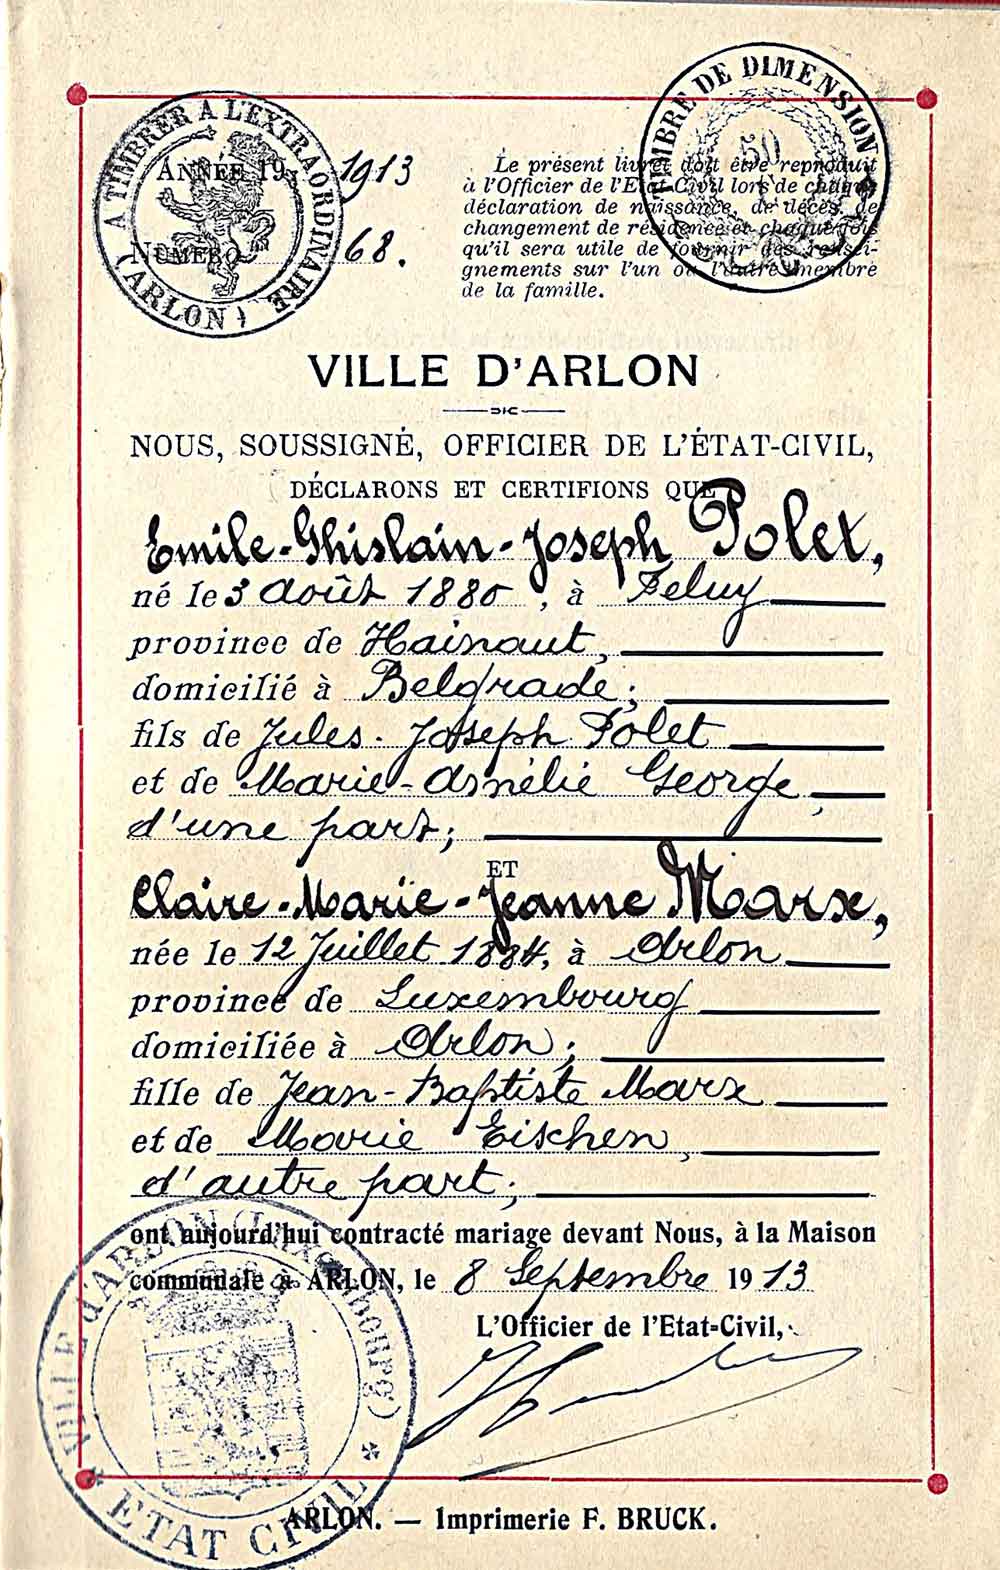 A TIMBRER A L'EXTRAORDINAIRE
(ARLON)
TIMBRE DE DIMENSION
50
ANNÉE 19 1913
NUMÉRO 68.
Le présent livret doit être reproduit
à l'Officier de l'Etat-Civil lors de chaque
déclaration de naissance, de décès, de
changement de résidence et chaque fois
qu'il sera utile de fournir des rensei-
gnements sur l'un ou l'autre membre
de la famille.
VILLE D'ARLON
NOUS, SOUSSIGNÉ, OFFICIER DE L'ÉTAT-CIVIL,
DÉCLARONS ET CERTIFIONS QUE
Emile-Ghislain-Joseph Polet,
né le 3 Août 1880, à Feluy
province de Hainaut,
domicilié à Belgrade;
fils de Jules-Joseph Polet
et de Marie-Amélie George,
d'une part;
ET
Claire-Marie-Jeanne Marx,
née le 12 Juillet 1884, à Arlon
province de Luxembourg
domiciliée à Arlon;
fille de Jean-Baptiste Marx
et de Marie Eischen,
d'autre part;
ont aujourd'hui contracté mariage devant Nous, à la Maison
communale à ARLON, le 8 Septembre 1913
L'Officier de l'Etat-Civil,
VILLE d'ARLON (Luxembourg)
ETAT CIVIL
ARLON. — Imprimerie F. BRUCK.